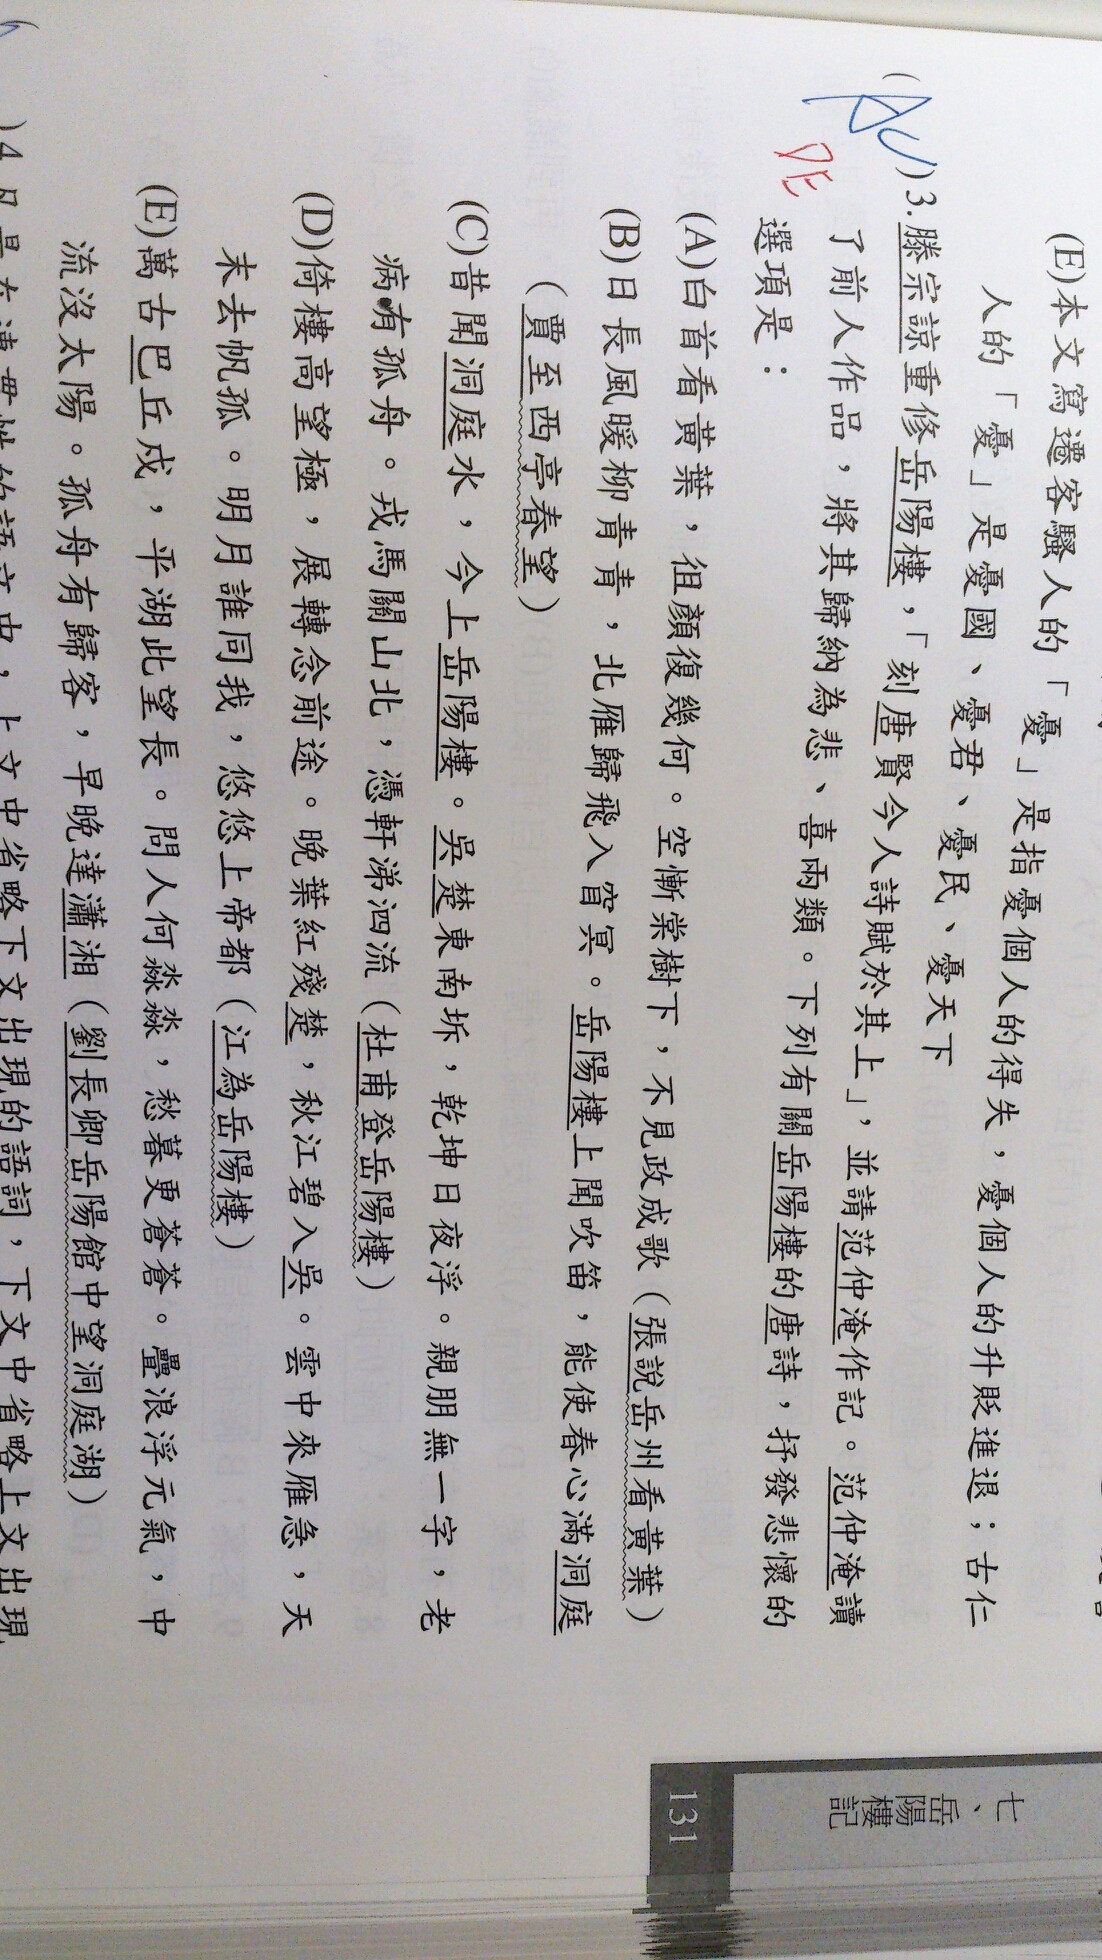 (E)本文寫遷客騷人的「憂」是指憂個人的得失，憂個人的升貶進退；古仁
人的「憂」是憂國、憂君、憂民、憂天下
(AC)3.滕宗諒重修岳陽樓，「刻唐賢今人詩賦於其上」，並請范仲淹作記。范仲淹讀
了前人作品，將其歸納為悲、喜兩類。下列有關岳陽樓的唐詩，抒發悲懷的
DE
選項是：
(A)白首看黃葉，徂顏復幾何。空慚棠樹下，不見政成歌（張說岳州看黃葉）
(B)日長風暖柳青青，北雁歸飛入窅冥。岳陽樓上聞吹笛，能使春心滿洞庭
（賈至西亭春望）
(C)昔聞洞庭水，今上岳陽樓。吳楚東南坼，乾坤日夜浮。親朋無一字，老
病有孤舟。戎馬關山北，憑軒涕泗流（杜甫登岳陽樓）
(D)倚樓高望極，展轉念前途。晚葉紅殘楚，秋江碧入吳。雲中來雁急，天
末去帆孤。明月誰同我，悠悠上帝都（江為岳陽樓）
(E)萬古巴丘戍，平湖此望長。問人何淼淼，愁暮更蒼蒼。疊浪浮元氣，中
流沒太陽。孤舟有歸客，早晚達瀟湘（劉長卿岳陽館中望洞庭湖）
)4.凡是在連貫性的語文中，上文中省略下文出現的語詞，下文中省略上文出現
七、岳陽樓記
131